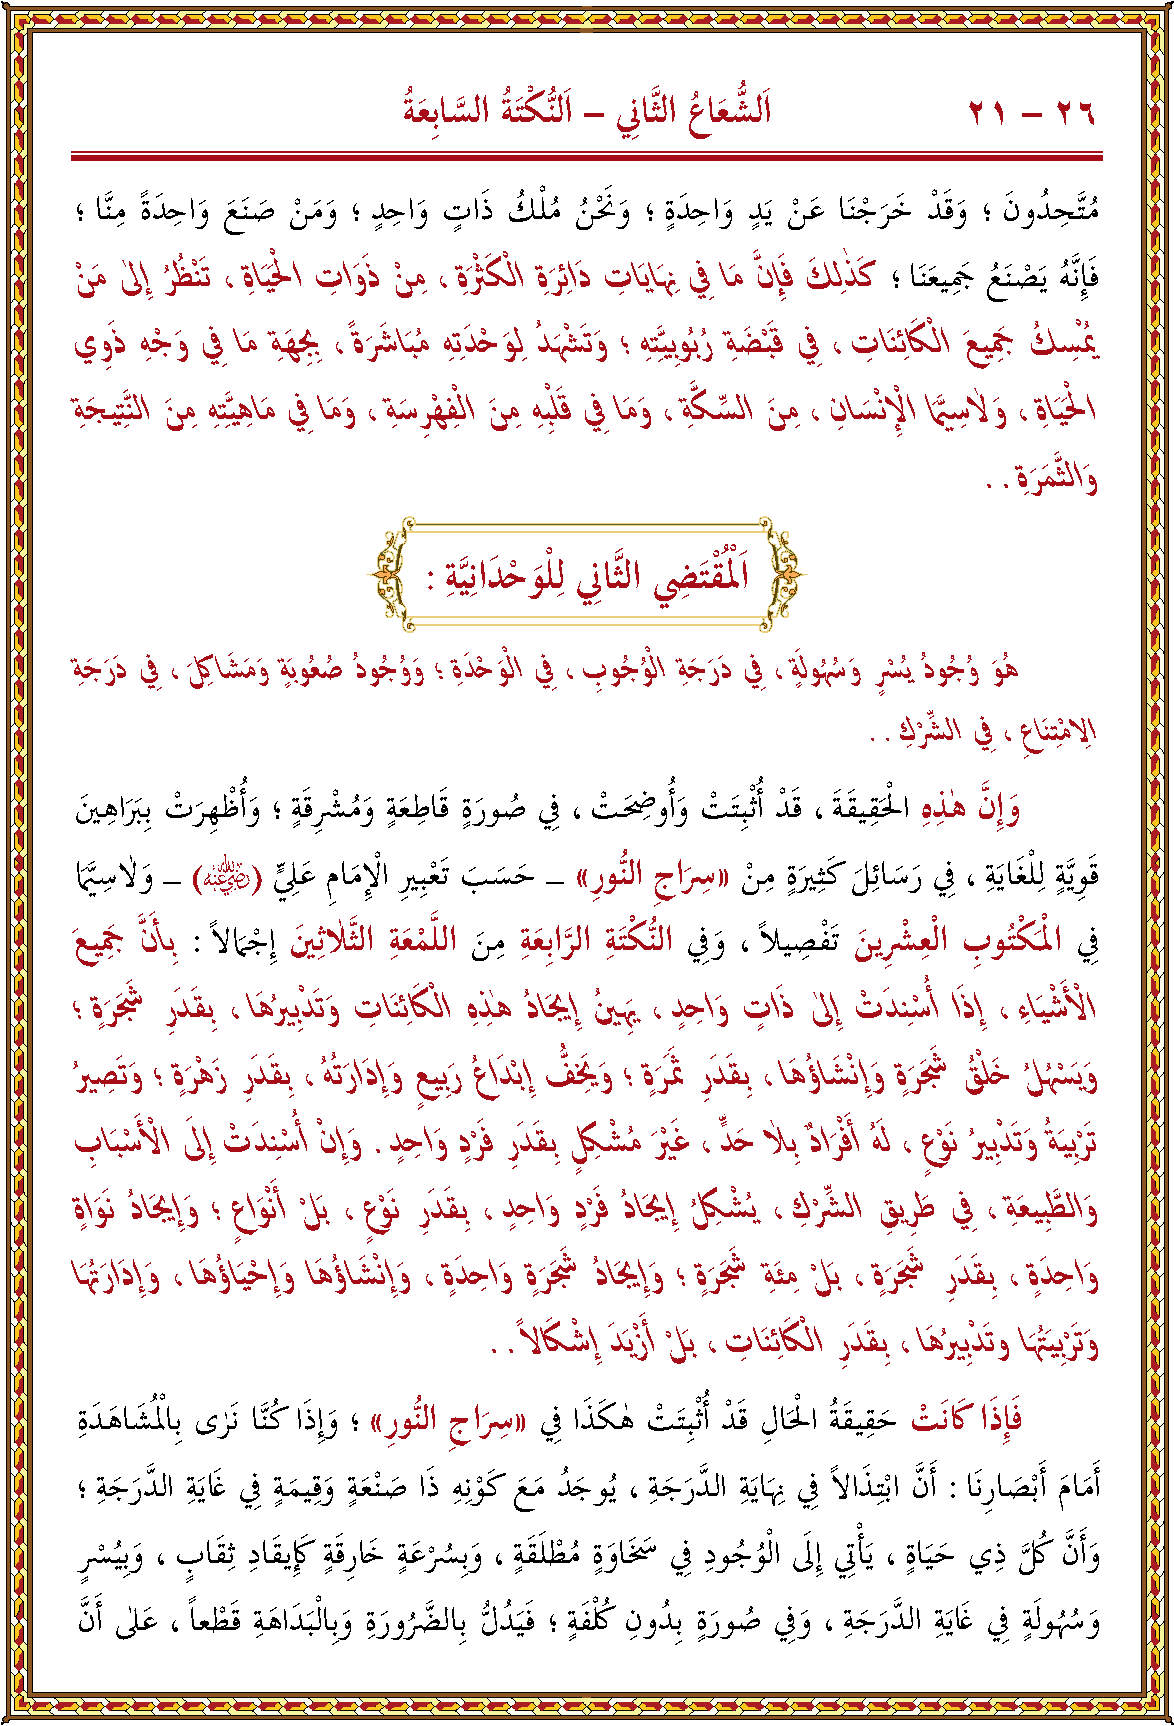 ٢٦ – ٢١ اَلشُّعَاعُ الثَّانِي – اَلنُّكْتَةُ السَّابِعَةُ
مُتَّحِدُونَ ؛ وَقَدْ خَرَجْنَا عَنْ يَدٍ وَاحِدَةٍ ؛ وَنَحْنُ مُلْكُ ذَاتٍ وَاحِدٍ ؛ وَمَنْ صَنَعَ وَاحِدَةً مِنَّا ؛
فَإِنَّهُ يَصْنَعُ جَمِيعَنَا ؛ كَذٰلِكَ فَإِنَّ مَا فِي نِهَايَاتِ دَائِرَةِ الْكَثْرَةِ ، مِنْ ذَوَاتِ الْحَيَاةِ ، تَنْظُرُ إِلىٰ مَنْ
يُمْسِكُ جَمِيعَ الْكَائِنَاتِ ، فِي قَبْضَةِ رُبُوبِيَّتِهِ ؛ وَتَشْهَدُ لِوَحْدَتِهِ مُبَاشَرَةً ، بِجِهَةِ مَا فِي وَجْهِ ذَوِي
الْحَيَاةِ ، وَلاَسِيَّمَا الْإِنْسَانِ ، مِنَ السِّكَّةِ ، وَمَا فِي قَلْبِهِ مِنَ الْفِهْرِسَةِ ، وَمَا فِي مَاهِيَّتِهِ مِنَ النَّتِيجَةِ
وَالثَّمَرَةِ . .
اَلْمُقْتَضِي الثَّانِي لِلْوَحْدَانِيَّةِ :
هُوَ وُجُودُ يُسْرٍ وَسُهُولَةٍ ، فِي دَرَجَةِ الْوُجُوبِ ، فِي الْوَحْدَةِ ؛ وَوُجُودُ صُعُوبَةٍ وَمَشَاكِلَ ، فِي دَرَجَةِ
الِامْتِنَاعِ ، فِي الشِّرْكِ . .
وَإِنَّ هٰذِهِ الْحَقِيقَةَ ، قَدْ أُثْبِتَتْ وَأُوضِحَتْ ، فِي صُورَةٍ قَاطِعَةٍ وَمُشْرِقَةٍ ؛ وَأُظْهِرَتْ بِبَرَاهِينَ
قَوِيَّةٍ لِلْغَايَةِ ، فِي رَسَائِلَ كَثِيرَةٍ مِنْ «سِرَاجِ النُّورِ» ــ حَسَبَ تَعْبِيرِ الْإِمَامِ عَلِيٍّ (رضي الله عنه) ــ وَلاٰسِيَّمَا
فِي الْمَكْتُوبِ الْعِشْرِينَ تَفْصِيلاً ، وَفِي النُّكْتَةِ الرَّابِعَةِ مِنَ اللَّمْعَةِ الثَّلاٰثِينَ إِجْمَالاً : بِأَنَّ جَمِيعَ
الْأَشْيَاءِ ، إِذَا أُسْنِدَتْ إِلىٰ ذَاتٍ وَاحِدٍ ، يَهِينُ إِيجَادُ هٰذِهِ الْكَائِنَاتِ وَتَدْبِيرُهَا ، بِقَدَرِ شَجَرَةٍ ؛
وَيَسْهُلُ خَلْقُ شَجَرَةٍ وَإِنْشَاؤُهَا ، بِقَدَرِ ثَمَرَةٍ ؛ وَيَخِفُّ إِبْدَاعُ رَبِيعٍ وَإِدَارَتُهُ ، بِقَدَرِ زَهْرَةٍ ؛ وَتَصِيرُ
تَرْبِيَةُ وَتَدْبِيرُ نَوْعٍ ، لَهُ أَفْرَادٌ بِلاٰ حَدٍّ ، غَيْرَ مُشْكِلٍ بِقَدَرِ فَرْدٍ وَاحِدٍ . وَإِنْ أُسْنِدَتْ إِلَى الْأَسْبَابِ
وَالطَّبِيعَةِ ، فِي طَرِيقِ الشِّرْكِ ، يُشْكِلُ إِيجَادُ فَرْدٍ وَاحِدٍ ، بِقَدَرِ نَوْعٍ ، بَلْ أَنْوَاعٍ ؛ وَإِيجَادُ نَوَاةٍ
وَاحِدَةٍ ، بِقَدَرِ شَجَرَةٍ ، بَلْ مِئَةِ شَجَرَةٍ ؛ وَإِيجَادُ شَجَرَةٍ وَاحِدَةٍ ، وَإِنْشَاؤُهَا وَإِحْيَاؤُهَا ، وَإِدَارَتُهَا
وَتَرْبِيَتُهَا وَتَدْبِيرُهَا ، بِقَدَرِ الْكَائِنَاتِ ، بَلْ أَزْيَدَ إِشْكَالاً . .
فَإِذَا كَانَتْ حَقِيقَةُ الْحَالِ قَدْ أُثْبِتَتْ هٰكَذَا فِي «سِرَاجِ النُّورِ» ؛ وَإِذَا كُنَّا نَرٰى بِالْمُشَاهَدَةِ
أَمَامَ أَبْصَارِنَا : أَنَّ ابْتِذَالاً فِي نِهَايَةِ الدَّرَجَةِ ، يُوجَدُ مَعَ كَوْنِهِ ذَا صَنْعَةٍ وَقِيمَةٍ فِي غَايَةِ الدَّرَجَةِ ؛
وَأَنَّ كُلَّ ذِي حَيَاةٍ ، يَأْتِي إِلَى الْوُجُودِ فِي سَخَاوَةٍ مُطْلَقَةٍ ، وَبِسُرْعَةٍ خَارِقَةٍ كَإِيقَادِ ثِقَابٍ ، وَبِيُسْرٍ
وَسُهُولَةٍ فِي غَايَةِ الدَّرَجَةِ ، وَفِي صُورَةٍ بِدُونِ كُلْفَةٍ ؛ فَيَدُلُّ بِالضَّرُورَةِ وَبِالْبَدَاهَةِ قَطْعاً ، عَلىٰ أَنَّ